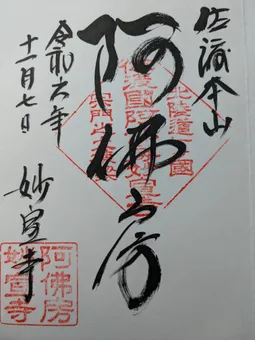 佐渡本山
阿佛房
令和六年
十一月七日
妙宣寺
阿佛房
妙宣寺